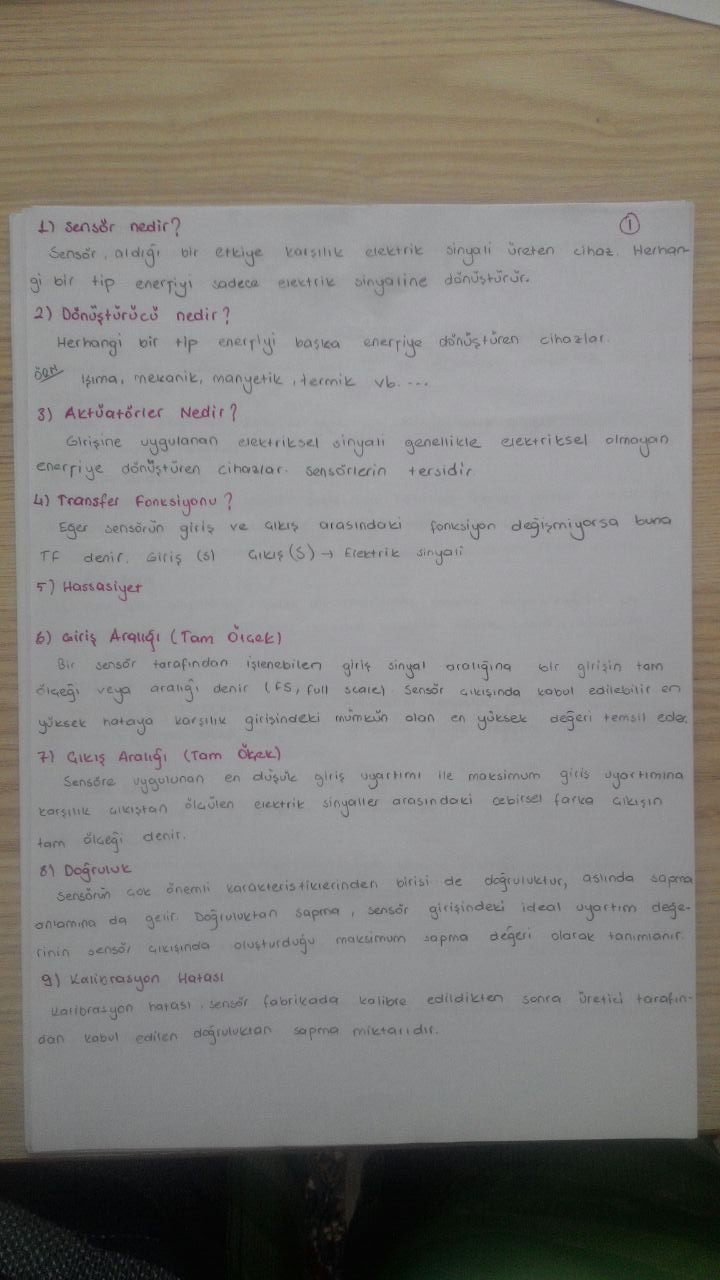 1) Sensör nedir?
①
Sensör, aldığı bir etkiye karşılık elektrik sinyali üreten cihaz. Herhan-
gi bir tip enerjiyi sadece elektrik sinyaline dönüştürür.
2) Dönüştürücü nedir?
Herhangi bir tip enerjiyi başka enerjiye dönüştüren cihazlar.
ÖRN Işıma, mekanik, manyetik, termik vb. ...
3) Aktüatörler Nedir?
Girişine uygulanan elektriksel sinyali genellikle elektriksel olmayan
enerjiye dönüştüren cihazlar. Sensörlerin tersidir.
4) Transfer Fonksiyonu?
Eğer sensörün giriş ve çıkış arasındaki fonksiyon değişmiyorsa buna
TF denir. Giriş (s) Çıkış (S) → Elektrik sinyali
5) Hassasiyet
6) Giriş Aralığı (Tam Ölçek)
Bir sensör tarafından işlenebilen giriş sinyal aralığına bir girişin tam
ölçeği veya aralığı denir (FS, full scale). Sensör çıkışında kabul edilebilir en
yüksek hataya karşılık girişindeki mümkün olan en yüksek değeri temsil eder.
7) Çıkış Aralığı (Tam Ölçek)
Sensöre uygulunan en düşük giriş uyartımı ile maksimum giriş uyartımına
karşılık çıkıştan ölçülen elektrik sinyaller arasındaki cebirsel farka çıkışın
tam ölçeği denir.
8) Doğruluk
Sensörün çok önemli karakteristiklerinden birisi de doğruluktur, aslında sapma
anlamına da gelir. Doğruluktan sapma, sensör girişindeki ideal uyartım değe-
rinin sensör çıkışında oluşturduğu maksimum sapma değeri olarak tanımlanır.
9) Kalibrasyon Hatası
Kalibrasyon hatası, sensör fabrikada kalibre edildikten sonra üretici tarafın-
dan kabul edilen doğruluktan sapma miktarıdır.